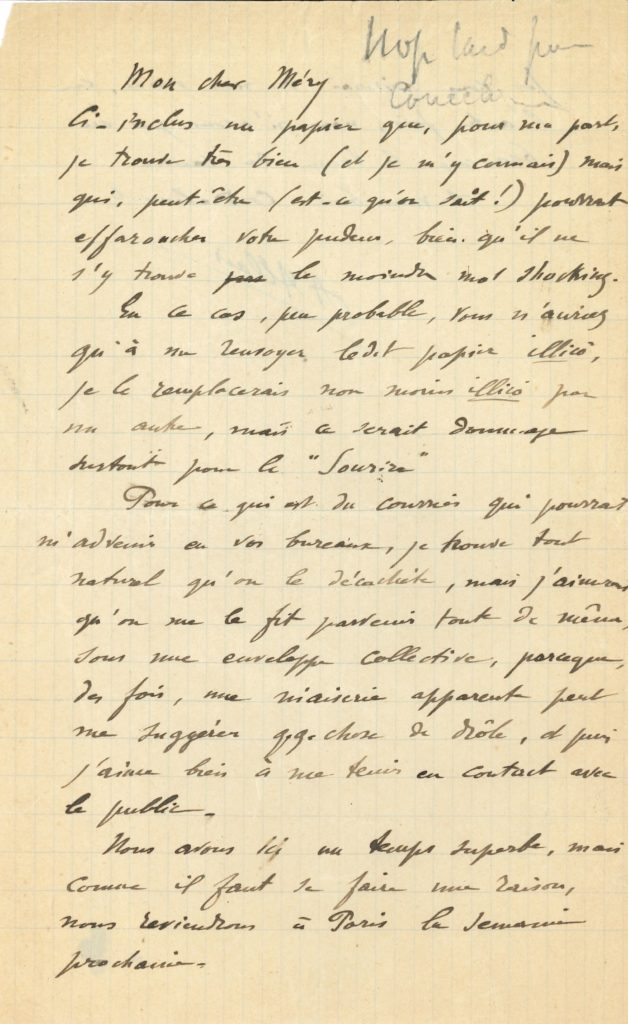 Trop tard pour
Mon cher Méry
Ci-inclus un papier que, pour ma part,
je trouve très bien (et je m'y connais) mais
qui, peut-être (est-ce qu'on sait!) pourrait
effaroucher votre pudeur, bien qu'il ne
s'y trouve pas le moindre mot shocking.
En ce cas, peu probable, vous n'auriez
qu'à me renvoyer ledit papier illicò,
je le remplacerais non moins illicò par
un autre, mais ce serait dommage
surtout pour le "Sourire"
Pour ce qui est du courrier qui pourrait
m'advenir en vos bureaux, je trouve tout
naturel qu'on le décachète, mais j'aimerais
qu'on me le fit parvenir tout de même,
sous une enveloppe collective, parceque,
des fois, une niaiserie apparente peut
me suggérer q.q. chose de drôle, et puis
j'aime bien à me tenir en contact avec
le public.
Nous avons ici un temps superbe, mais
comme il faut se faire une raison,
nous reviendrons à Paris la semaine
prochaine.